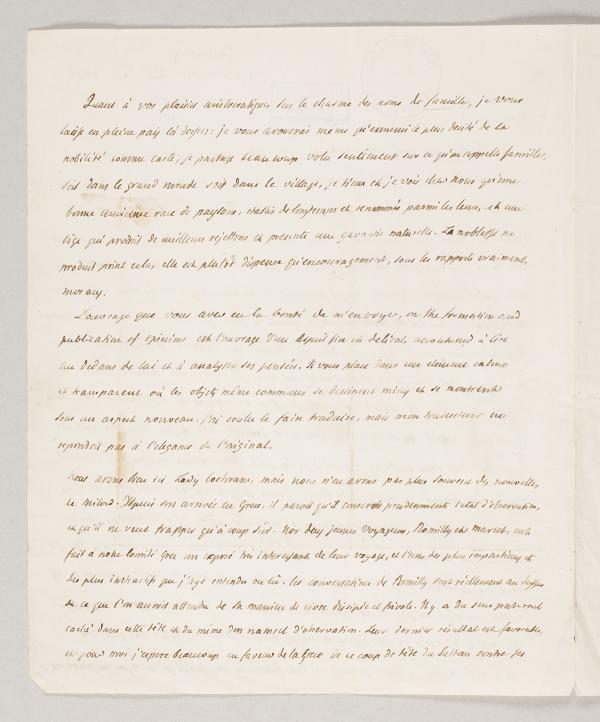 Quant à vos plaisirs aristocratiques sur le charme des noms de famille, je vous
laisse en pleine paix là dessus: je vous avouerai même qu'ennemi le plus décidé de la
nobilité comme caste, je partage beaucoup votre sentiment sur ce qu'on appelle famille,
soit dans le grand monde soit dans le village, je tiens et je vois chez nous qu'une
bonne ancienne race de paysans, établis de longtemps et renommé parmi les leurs, est une
tige qui produit de meilleurs rejettons et présente une garantie naturelle. La noblesse ne
produit point cela, elle est plutôt dispense qu'encouragement, sous les rapports vraiment
moraux.
L'ouvrage que vous avez eu la bonté de m'envoyer, on the formation and
publication of opinions est l'ouvrage d'un esprit fin et délicat accoutumé à lire
au dedans de lui et à analyser ses pensées. Il vous place dans un élément calme
et transparent où les objets même communs se dessinent mieux et se montrent
sous un aspect nouveau. J'ai voulu le faire traduire, mais mon traducteur ne
repondoit pas à l'élégance de l'original.
Nous avons bien ici Lady Cochrane, mais nous n'en avons pas plus souvent des nouvelles
de milord. Depuis son arrivée en Grèce, il paroit qu'il conserve prudemment l'état d'observation,
et qu'il ne veut frapper qu'à coup sûr. Nos deux jeunes voyageurs, Romilly et Marcet, ont
fait à notre Comité Grec un exposé très intéressant de leur voyage, et l'un des plus impartiaux et
des plus instructifs que j'aye entendu ou lû. Les conversations de Romilly sont réellement au dessus
de ce que l'on auroit attendu de sa manière de vivre dissipée et frivole. Il y a du sens naturel
caché dans cette tête et du même don naturel d'observation. Leur dernier résultat est favorable,
et pour moi j'espère beaucoup en faveur de la Grèce de ce coup de tête du Sultan contre ses